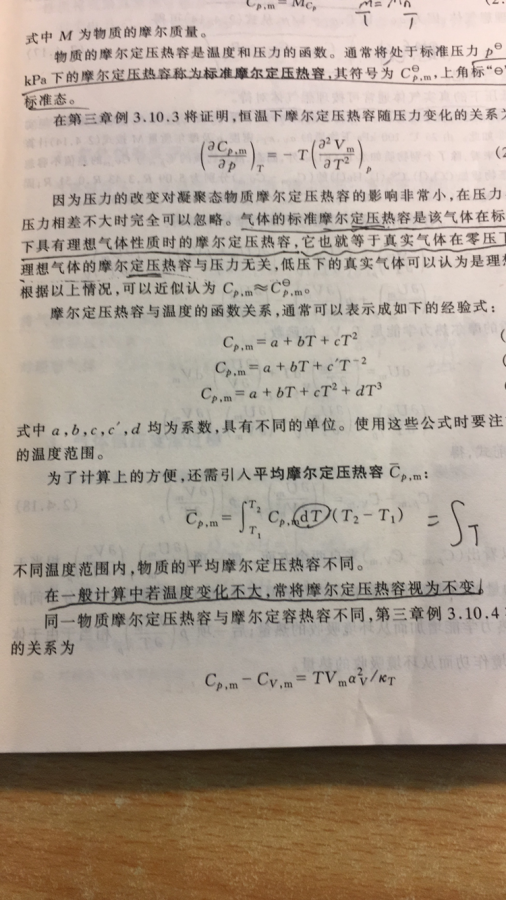 C_{p,m}=MC_p
式中 M 为物质的摩尔质量。
物质的摩尔定压热容是温度和压力的函数。通常将处于标准压力 p^⊖
kPa 下的摩尔定压热容称为标准摩尔定压热容,其符号为 C^⊖_{p,m},上角标“⊖”
标准态。
在第三章例 3.10.3 将证明,恒温下摩尔定压热容随压力变化的关系为
(∂C_{p,m}/∂p)_T = −T(∂²V_m/∂T²)_p
因为压力的改变对凝聚态物质摩尔定压热容的影响非常小,在压力
压力相差不大时完全可以忽略。气体的标准摩尔定压热容是该气体在标
下具有理想气体性质时的摩尔定压热容,它也就等于真实气体在零压下
理想气体的摩尔定压热容与压力无关,低压下的真实气体可以认为是理想
根据以上情况,可以近似认为 C_{p,m}≈C^⊖_{p,m}。
摩尔定压热容与温度的函数关系,通常可以表示成如下的经验式:
C_{p,m}=a+bT+cT²
C_{p,m}=a+bT+c′T⁻²
C_{p,m}=a+bT+cT²+dT³
式中 a,b,c,c′,d 均为系数,具有不同的单位。使用这些公式时要注
的温度范围。
为了计算上的方便,还需引入平均摩尔定压热容 C̄_{p,m}:
C̄_{p,m}=∫_{T₁}^{T₂} C_{p,m}dT/(T₂−T₁) =∫_T
不同温度范围内,物质的平均摩尔定压热容不同。
在一般计算中若温度变化不大,常将摩尔定压热容视为不变。
同一物质摩尔定压热容与摩尔定容热容不同,第三章例 3.10.4
的关系为
C_{p,m}−C_{V,m}=TV_mα_V²/κ_T